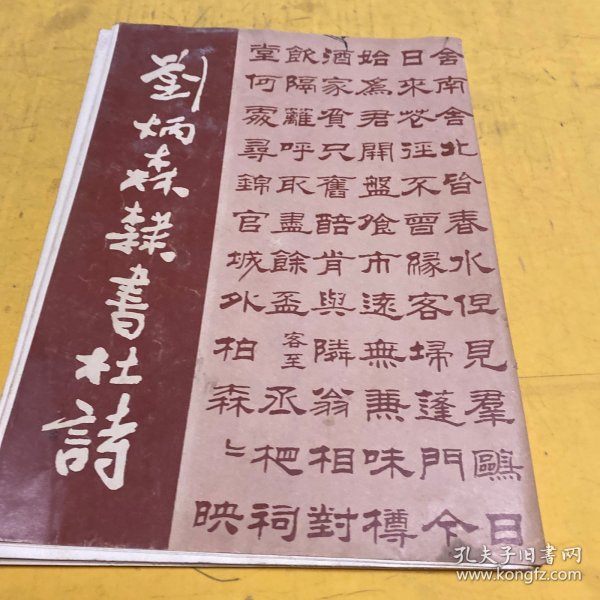 劉炳森隸書杜詩
舍南舍北皆春水但見羣鷗日
日來花徑不曾緣客掃蓬門今
始為君開盤飧市遠無兼味樽
酒家貧只舊醅肯與隣翁相對
飲隔籬呼取盡餘盃客至丞相祠
堂何處尋錦官城外柏森〻映
孔夫子旧书网
www.kongfz.com